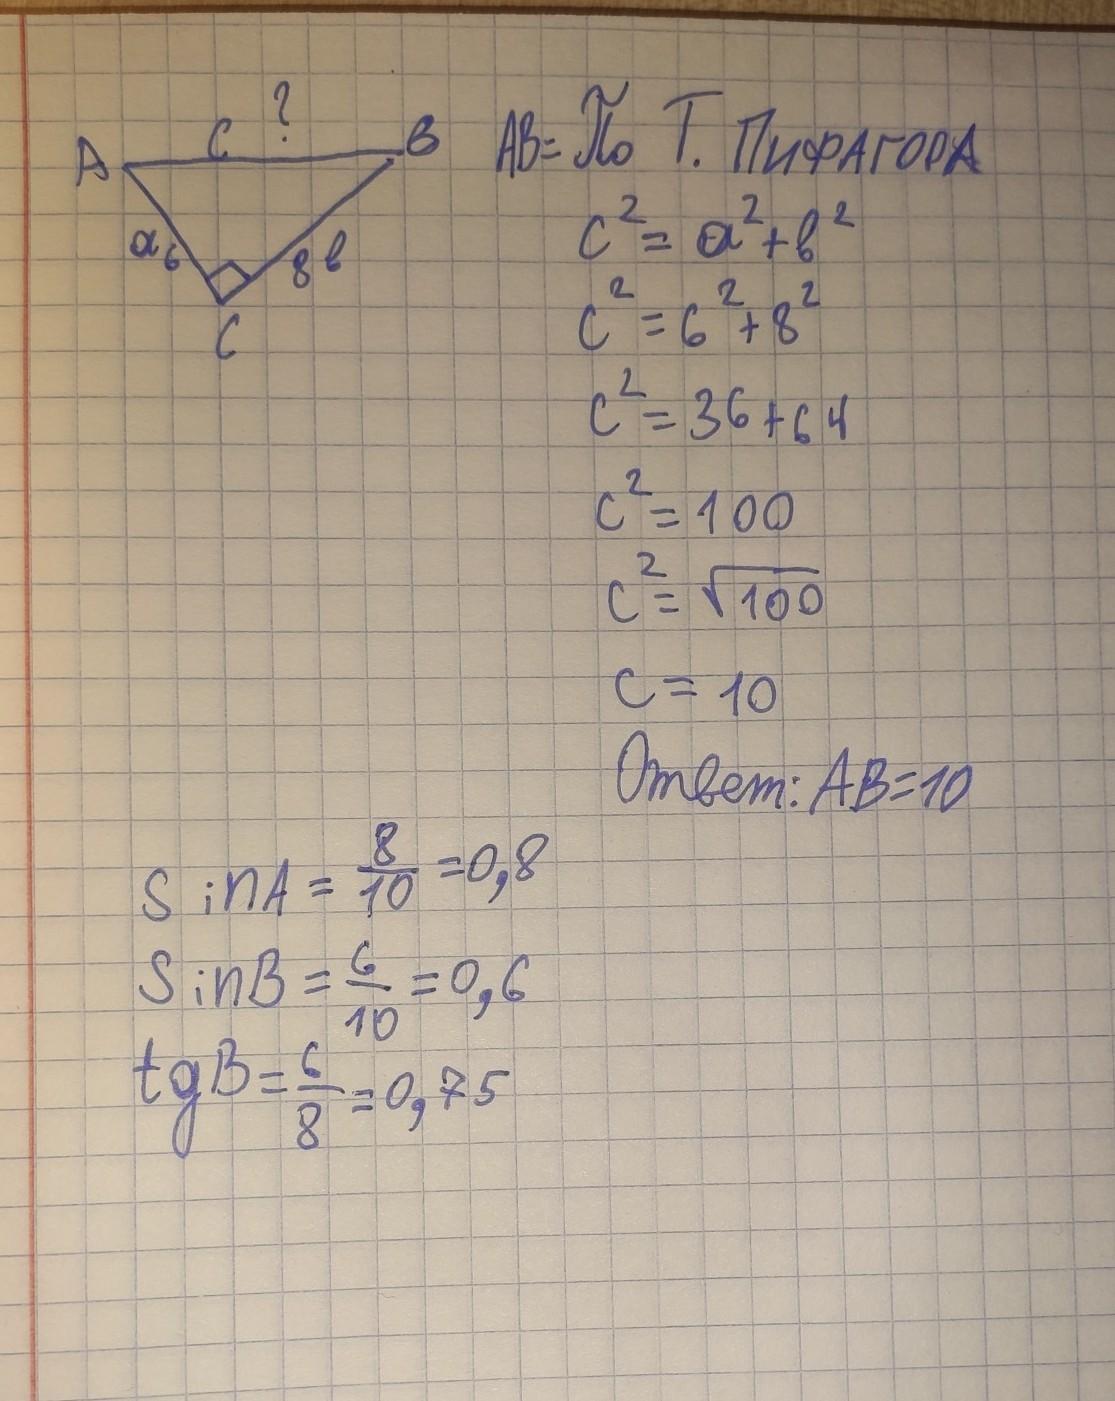 ? 
A c B
a 6 8 в
C
AB= По Т. ПИФАГОРА
c² = a² + в²
c² = 6² + 8²
c² = 36 + 64
c² = 100
c² = √100
c = 10
Ответ: AB=10
SinA = 8/10 = 0,8
SinB = 6/10 = 0,6
tgB = 6/8 = 0,75